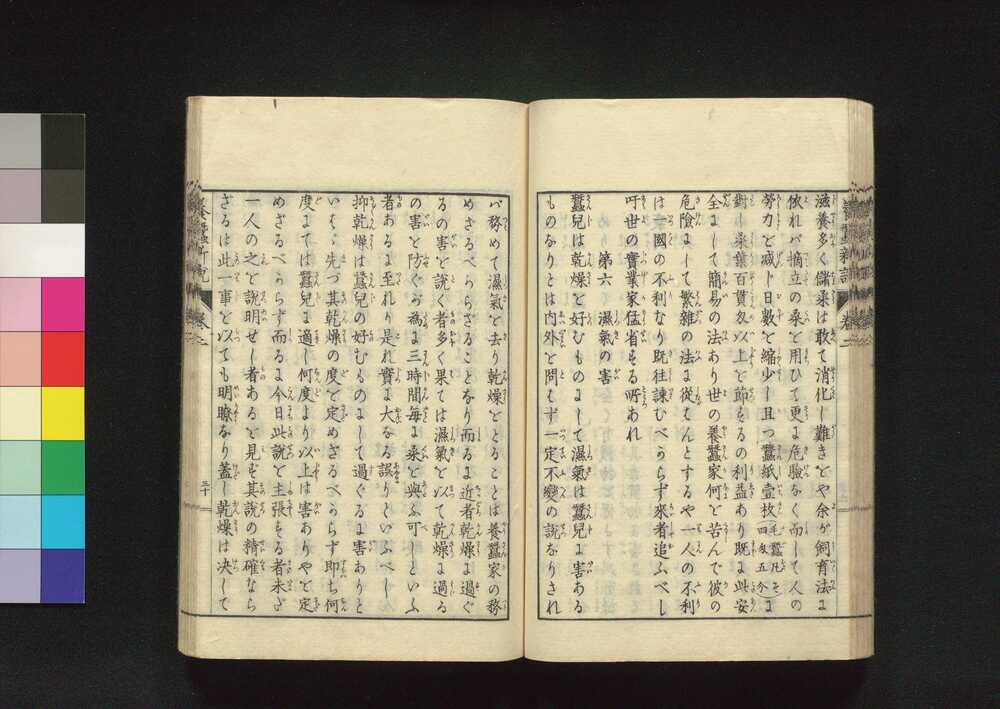 滋養多く儲桑は敢て消化し難きをや余が飼育法に
依れバ摘立の桑を用ひて更に危險なく而して人の
勞力を减し日數を縮少し且つ蠶紙壹枚(毛蠶凡そ四匁五分)に
對し桑葉百貫匁以上を節するの利益あり既に此安
全にして簡易の法あり世の養蠶家何を苦んで彼の
危險にして繁雜の法に從はんとするや一人の不利
は一國の不利なり既徃諫むべからず來者追ふべし
吁世の實業家猛省する所あれ
第六 濕氣の害
蠶兒は乾燥を好むものにして濕氣は蠶兒に害ある
ものなりとは内外を問はず一定不變の説なりされ
バ務めて濕氣を去り乾燥をとることは養蠶家の務
めざるべからざることなり而るに近者乾燥に過ぐ
るの害を説く者多く果ては濕氣を以て乾燥に過る
の害を防ぐ爲に三時間毎に桑を與ふ可しといふ
者あるに至れり是れ實に大なる誤りといふべし
抑乾燥は蠶兒の好むものにして過ぐるに害ありと
いはゞ先づ其乾燥の度を定めざるべからず即ち何
度までは蠶兒に適し何度より以上は害ありやを定
めざるべからず而るに今日此説を主張する者未だ
一人の之を説明せし者あるを見ず其説の精確なら
ざるは此一事を以ても明瞭なり蓋し乾燥は决して
三十